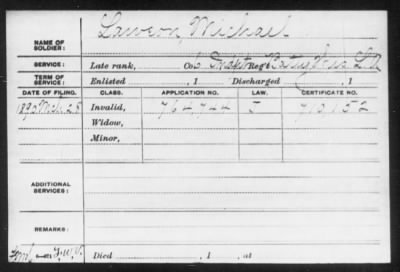 Lawson, Michael
NAME OF
SOLDIER:
SERVICE: Late rank, Co. Reg't
TERM OF
SERVICE: Enlisted , 1 Discharged , 1
DATE OF FILING. CLASS. APPLICATION NO. LAW. CERTIFICATE NO.
Invalid, 764,744 J 710,152
Widow,
Minor,
ADDITIONAL
SERVICES:
REMARKS:
Died , 1 , at